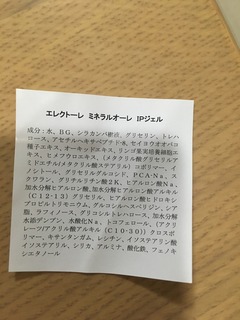 エレクトーレ ミネラルオーレ IPジェル
成分：水、BG、シラカンバ樹液、グリセリン、トレハ
ロース、アセチルヘキサペプチド-8、セイヨウオオバコ
種子エキス、オーキッドエキス、リンゴ果実培養細胞エ
キス、ヒメフウロエキス、（メタクリル酸グリセリルアミ
ドエチル/メタクリル酸ステアリル）コポリマー、イ
ノシトール、グリセリルグルコシド、PCA-Na、ス
クワラン、グリチルリチン酸2K、ヒアルロン酸Na、
加水分解ヒアルロン酸、加水分解ヒアルロン酸アルキル
（C12-13）グリセリル、ヒアルロン酸ヒドロキシ
プロピルトリモニウム、グルコシルヘスペリジン、シア
脂、ラフィノース、グリコシルトレハロース、加水分解
水添デンプン、水酸化Na、トコフェロール、（アク
リレーツ/アクリル酸アルキル（C10-30））クロスポ
リマー、キサンタンガム、レシチン、イソステアリン酸
イソステアリル、シリカ、アルミナ、酸化鉄、フェノキ
シエタノール